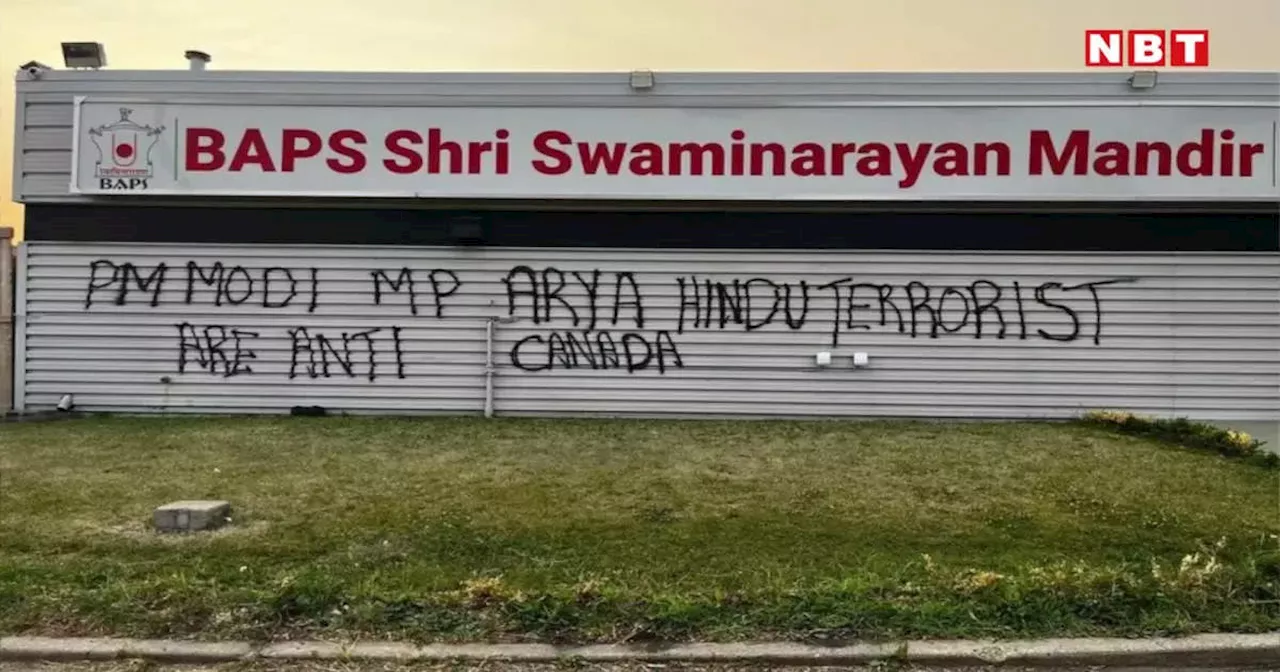 NBT
BAPS Shri Swaminarayan Mandir
BAPS
PM MODI MP ARYA HINDU TERRORIST
ARE ANTI CANADA